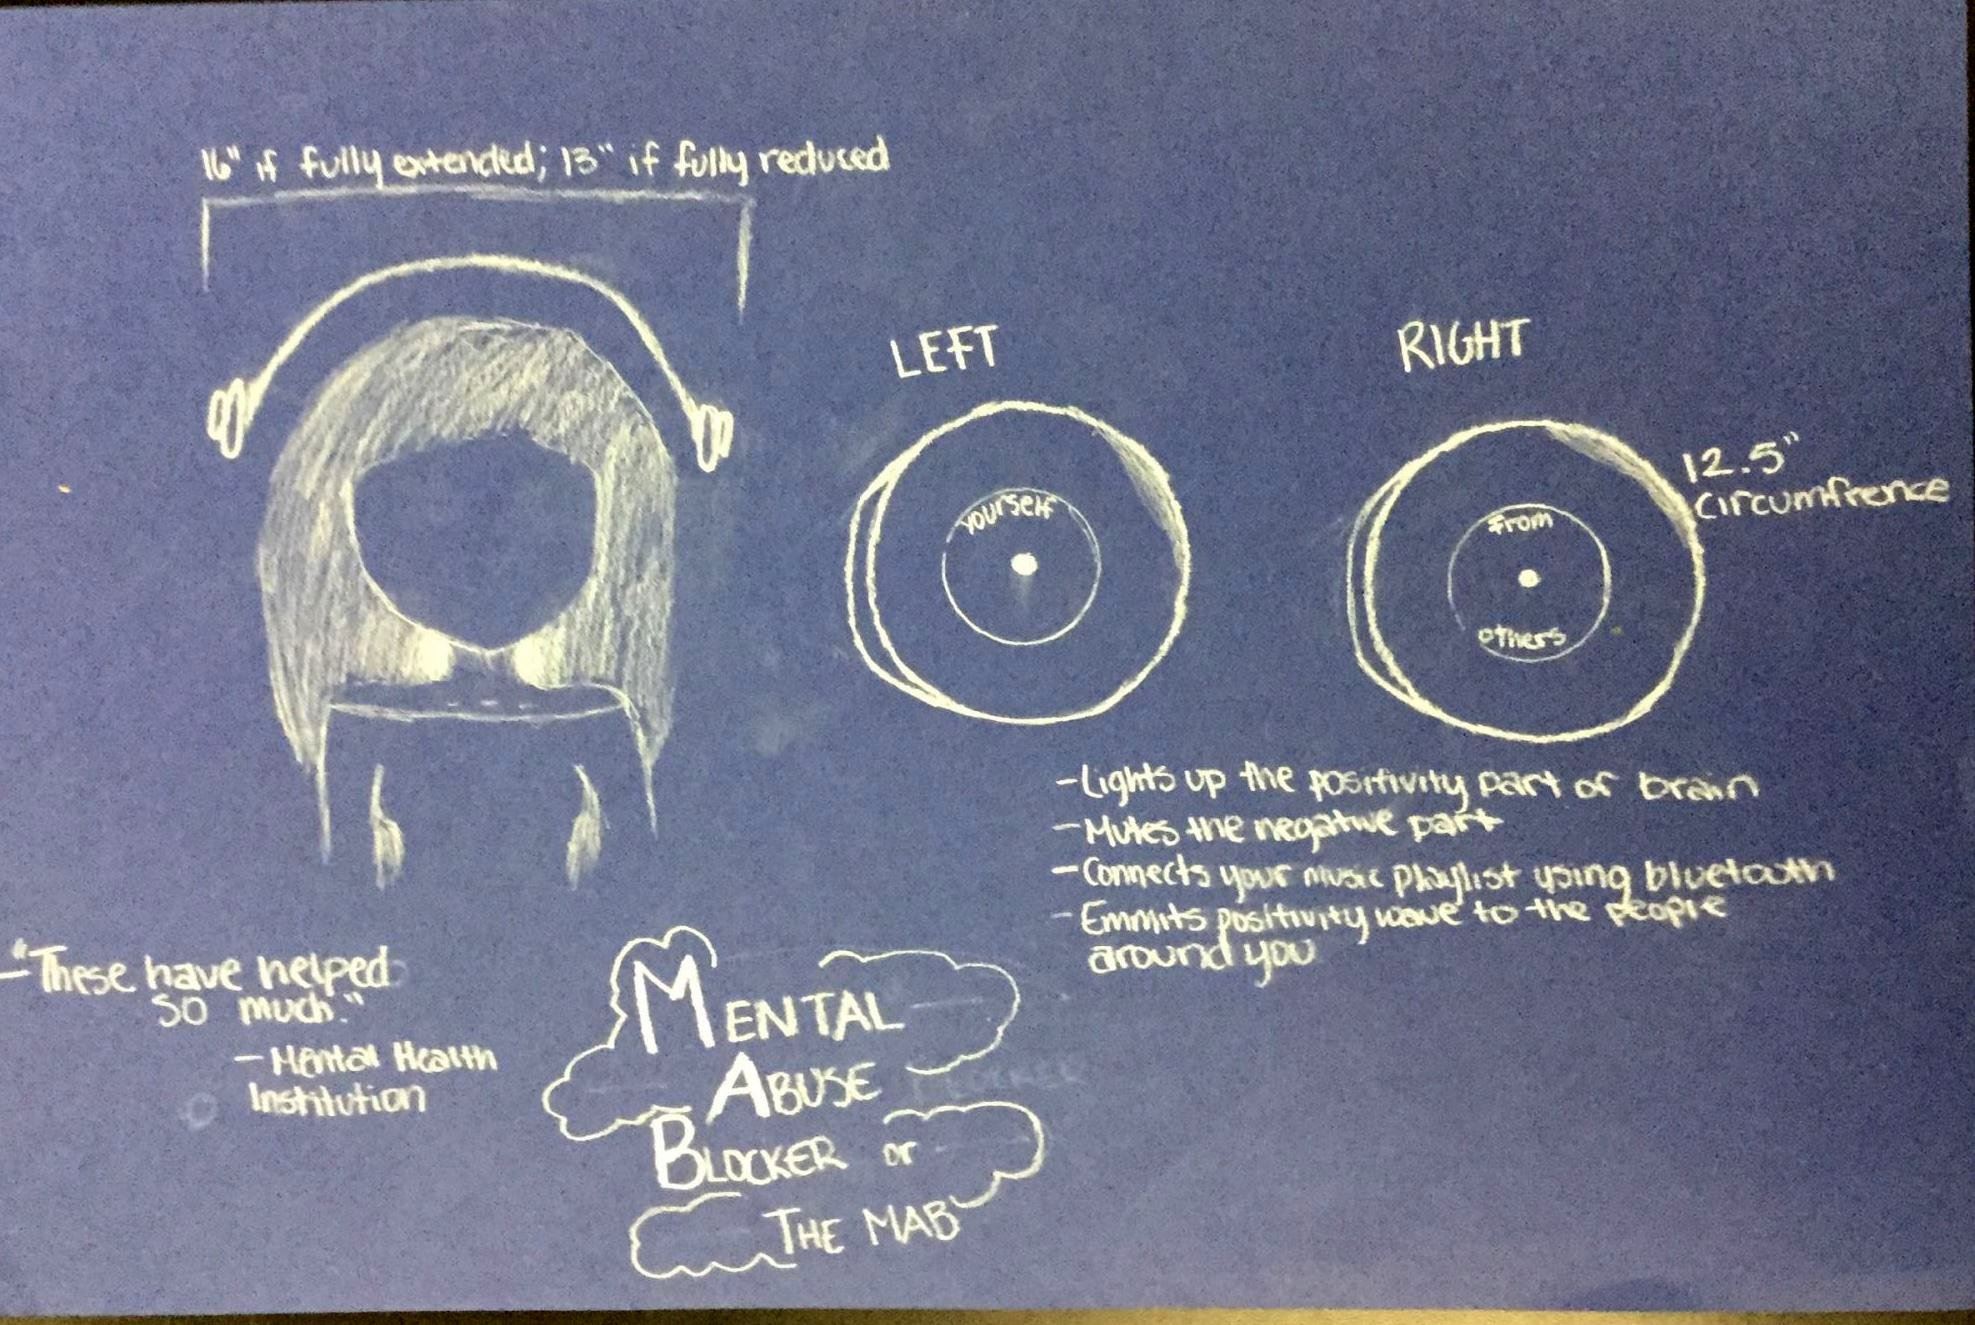 16" if fully extended; 13" if fully reduced
LEFT
yourself
RIGHT
From
others
12.5"
Circumfrence
-Lights up the positivity part of brain
-Mutes the negative part
-Connects your music playlist using bluetooth
-Emmits positivity wave to the people
around you
-"These have helped
so much."
-Mental Health
Institution
MENTAL
ABUSE
BLOCKER or
THE MAB